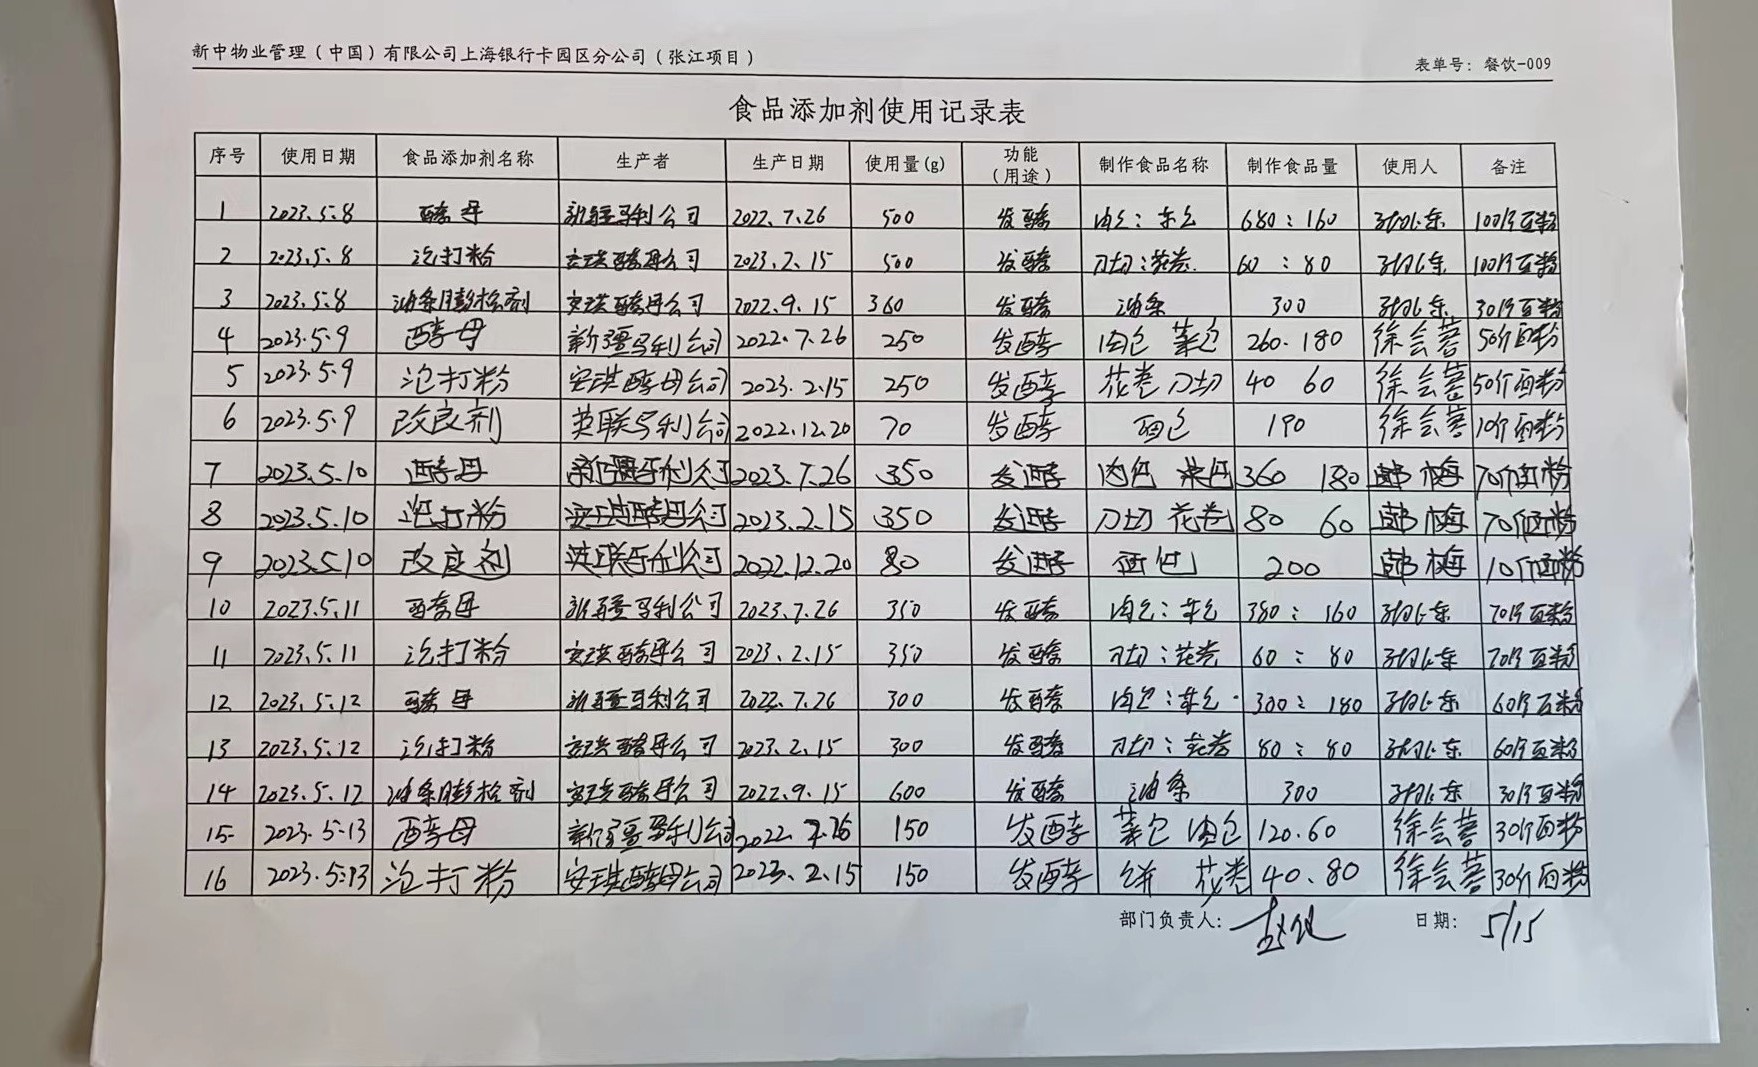 新中物业管理(中国)有限公司上海银行卡园区分公司(张江项目) 表单号: 餐饮-009
食品添加剂使用记录表
序号 使用日期 食品添加剂名称 生产者 生产日期 使用量(g) 功能(用途) 制作食品名称 制作食品量 使用人 备注
1 2023.5.8 酵母 新疆马利公司 2022.7.26 500 发酵 肉包:菜包 680:160 100斤面粉
2 2023.5.8 泡打粉 安琪酵母公司 2023.2.15 500 发酵 刀切:花卷 60:80 100斤面粉
3 2023.5.8 油条膨松剂 安琪酵母公司 2022.9.15 360 发酵 油条 300 30斤面粉
4 2023.5.9 酵母 新疆马利公司 2022.7.26 250 发酵 肉包 菜包 260.180 徐会蓉 50斤面粉
5 2023.5.9 泡打粉 安琪酵母公司 2023.2.15 250 发酵 花卷 刀切 40 60 徐会蓉 50斤面粉
6 2023.5.9 改良剂 英联马利公司 2022.12.20 70 发酵 面包 190 徐会蓉 10斤面粉
7 2023.5.10 酵母 新疆马利公司 2023.7.26 350 发酵 肉包 菜包 360 180 韩梅 70斤面粉
8 2023.5.10 泡打粉 安琪酵母公司 2023.2.15 350 发酵 刀切 花卷 80 60 韩梅 70斤面粉
9 2023.5.10 改良剂 英联马利公司 2022.12.20 80 发酵 面包 200 韩梅 10斤面粉
10 2023.5.11 酵母 新疆马利公司 2023.7.26 350 发酵 肉包:菜包 380:160 70斤面粉
11 2023.5.11 泡打粉 安琪酵母公司 2023.2.15 350 发酵 刀切:花卷 60:80 70斤面粉
12 2023.5.12 酵母 新疆马利公司 2022.7.26 300 发酵 肉包:菜包 300:180 60斤面粉
13 2023.5.12 泡打粉 安琪酵母公司 2023.2.15 300 发酵 刀切:花卷 80:80 60斤面粉
14 2023.5.12 油条膨松剂 安琪酵母公司 2022.9.15 600 发酵 油条 300 30斤面粉
15 2023.5.13 酵母 新疆马利公司 2022.7.26 150 发酵 菜包 肉包 120.60 徐会蓉 30斤面粉
16 2023.5.13 泡打粉 安琪酵母公司 2023.2.15 150 发酵 饼 花卷 40.80 徐会蓉 30斤面粉
部门负责人: 日期: 5/15